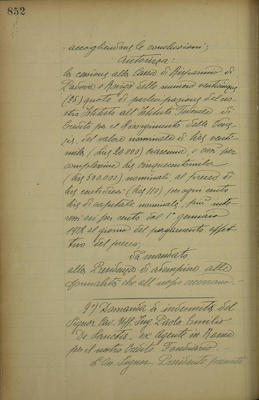 852
accogliendone le conclusioni;
Autorizza:
la cessione alla Cassa di Risparmio di
Padova e Rovigo delle numero venticinque
(25) quote di partecipazione del no
stro Istituto all'Istituto Federale di
Credito per il Risorgimento delle Vene
zie, del valore nominale di lire venti
mila (lire 20.000) ciascuna e così per
complessive lire cinquecentomila
(lire 500.000) nominali, al prezzo di
lire centodieci (lire 110) per ogni cento
lire di capitale nominale, più inte
ressi sei per cento dal 1° gennaio
1928 al giorno del pagamento effet
tivo del prezzo;
Dà mandato
alla Presidenza di adempiere alle
formalità che all'uopo occorrono.
9°) Domanda di indennità del
Signor Cav. Uff. Ing. Paolo Emilio
De Sanctis, ex Agente in Roma
per il nostro Credito Fondiario.
Il Signor Presidente